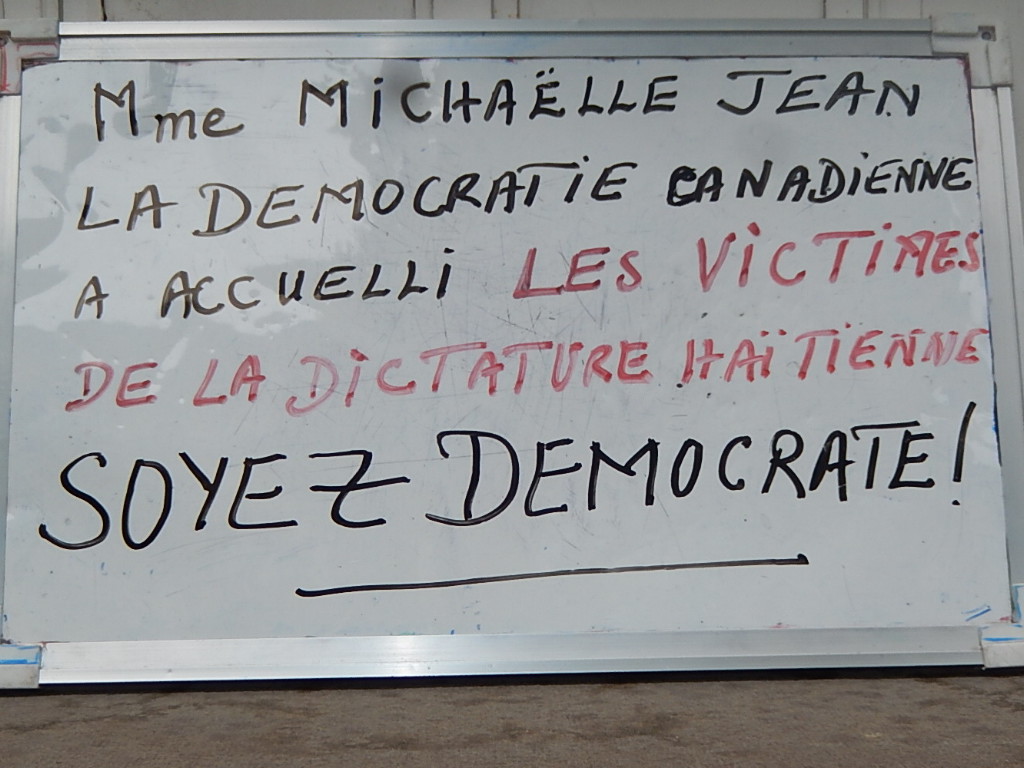 Mme MiCHAËLLE JEAN
LA DEMOCRATiE CANADiENNE
A ACCUELLi LES ViCTiMES
DE LA DiCTATURE HAÏTiENNE
SOYEZ DEMOCRATE!